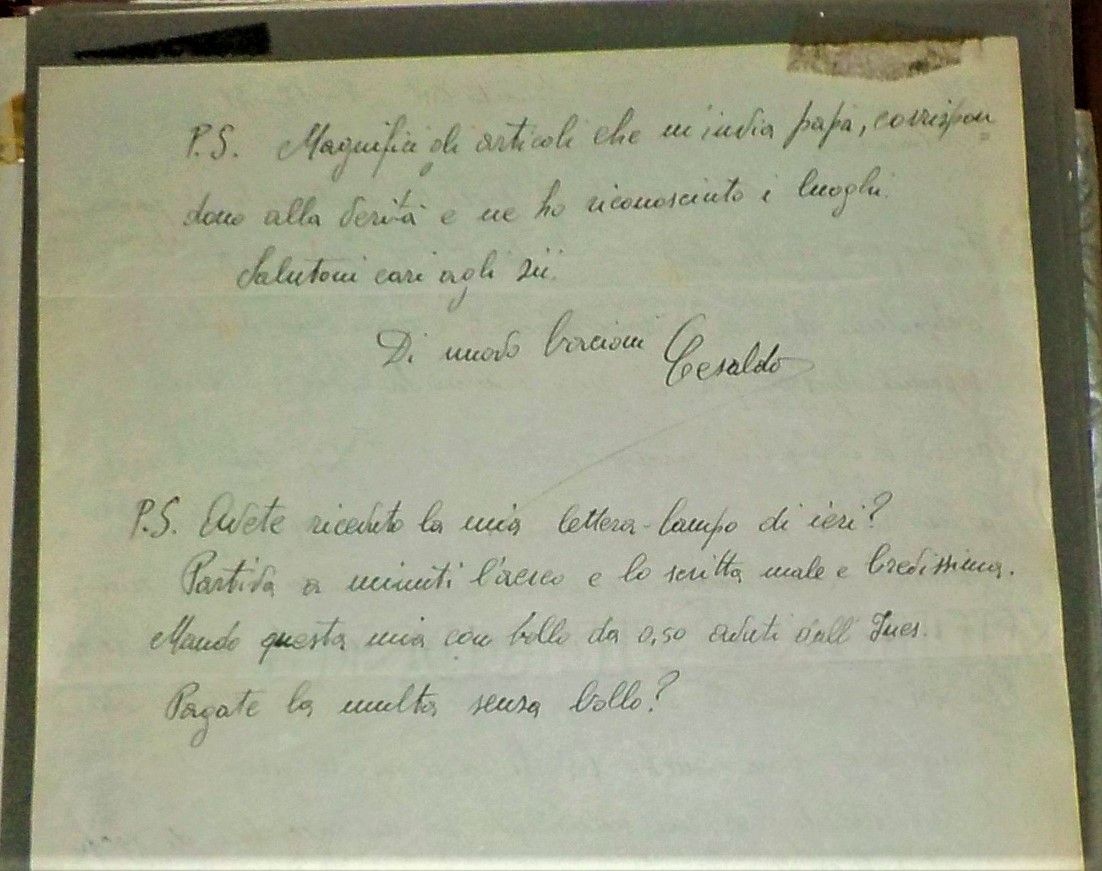 P.S. Magnifici gli articoli che m'invia papà, corrispon=
dono alla verità e ne ho riconosciuto i luoghi.
Salutoni cari agli zii.
Di nuovo bacioni Cesaldo
P.S. Avete ricevuto la mia lettera-lampo di ieri?
Partiva a minuti l'aereo e lo scritta male e brevissima.
Mando questa mia con bollo da 0,50 avuti dall' Ines.
Pagate la multa senza bollo?